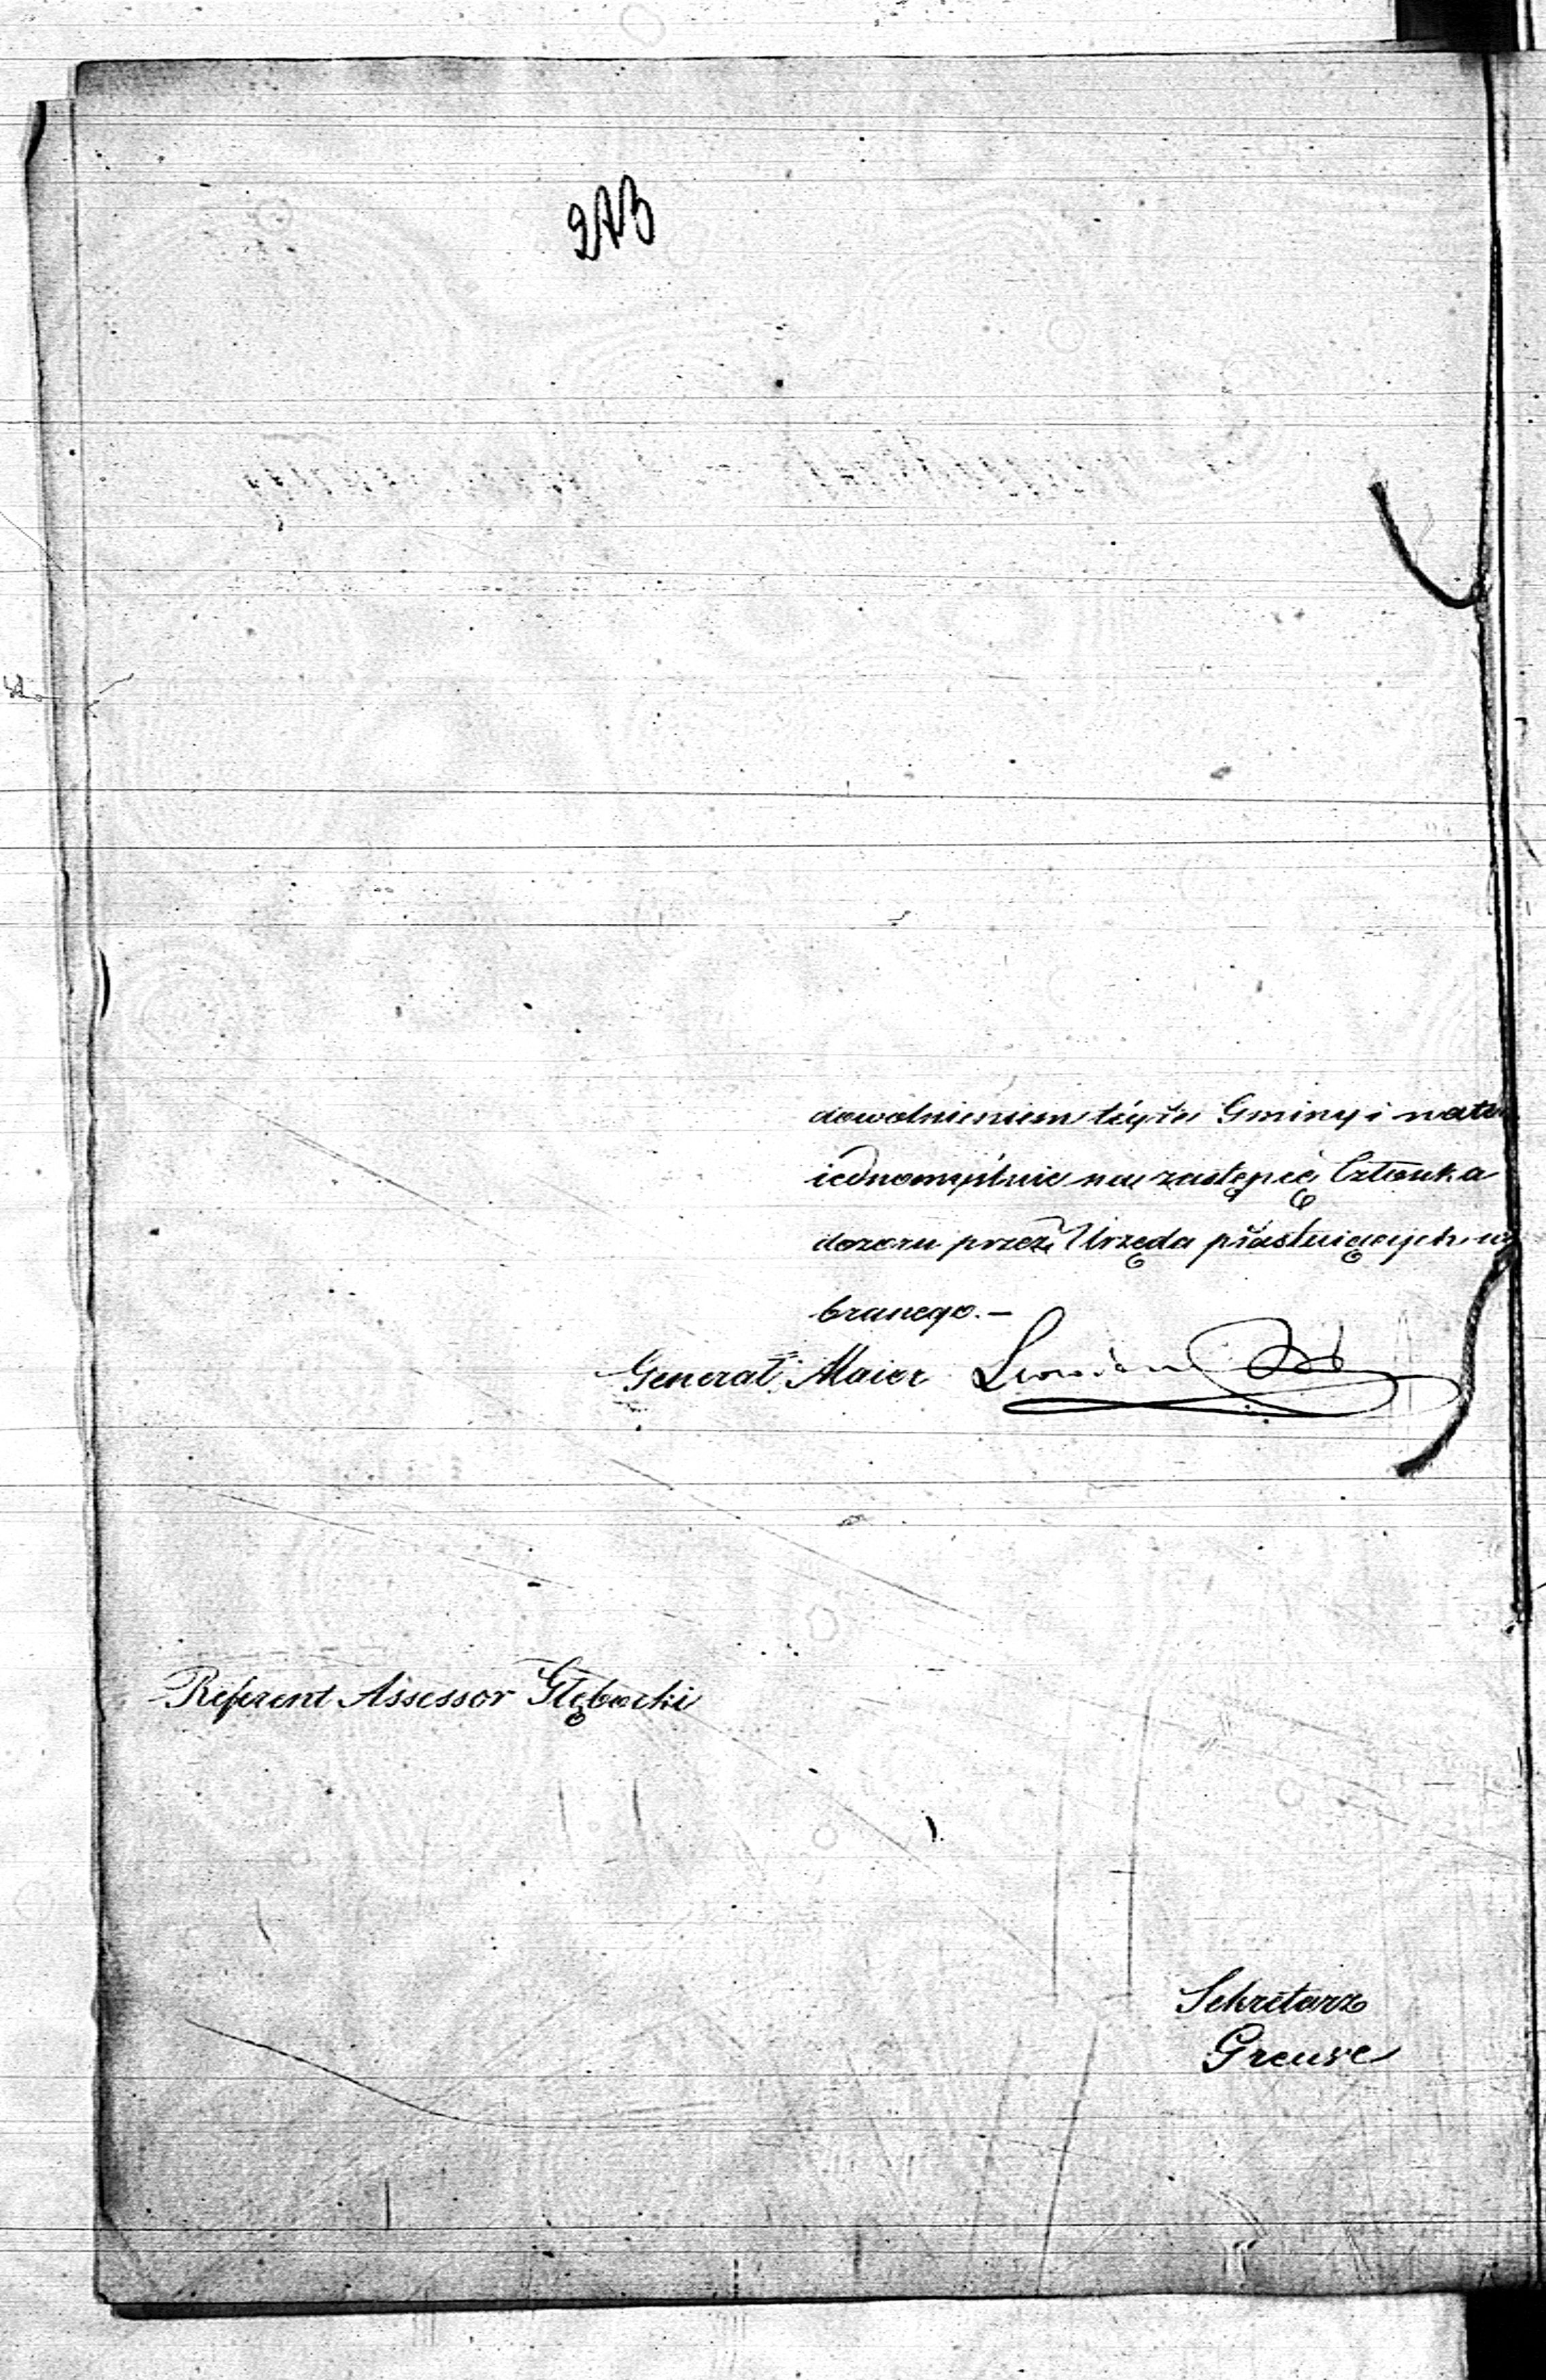 273
dowolnieniem teyże Gminy i
iednomyślnie na zastępcę Członka
dozoru przez Urzęda piastuiących
branego. —
Generał Maier
Referent Assessor Głębocki
Sekretarz
Greuve